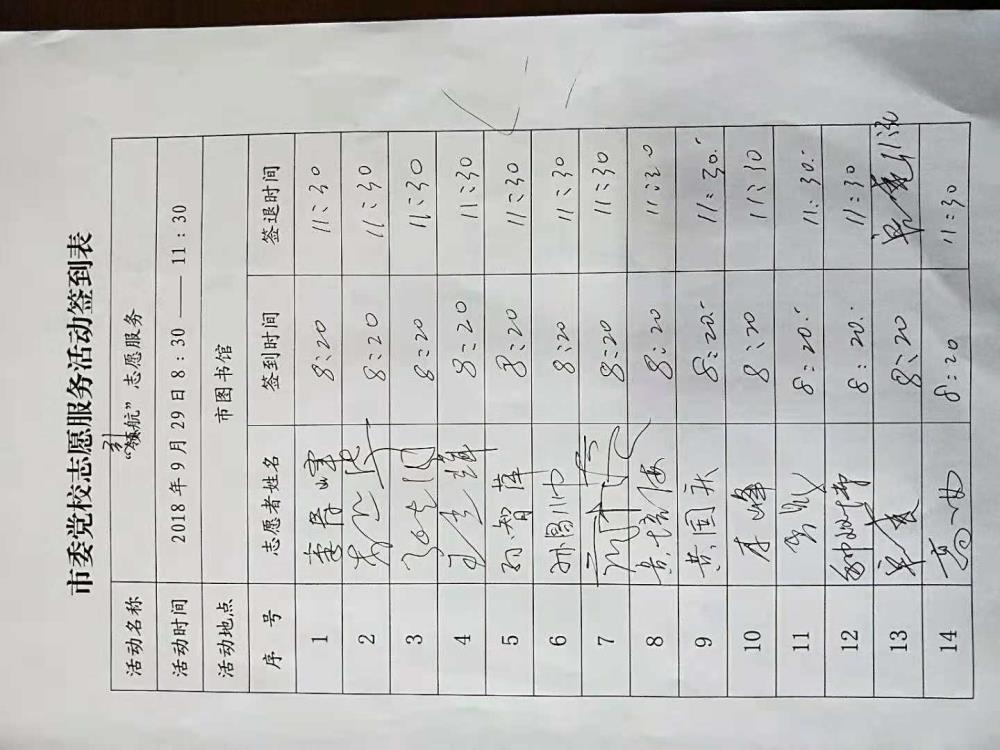 市委党校志愿服务活动签到表
活动名称 “引航”志愿服务
活动时间 2018年9月29日8:30——11:30
活动地点 市图书馆
序 号 志愿者姓名 签到时间 签退时间
1 8:20 11:30
2 8:20 11:30
3 8:20 11:30
4 8:20 11:30
5 孙智萍 8:20 11:30
6 孙昌川 8:20 11:30
7 8:20 11:30
8 黄培海 8:20 11:30
9 黄国庆 8:20. 11:30.
10 李峰 8:20 11:30
11 8:20. 11:30.
12 8:20. 11:30
13 8:20 11:30
14 8:20 11:30